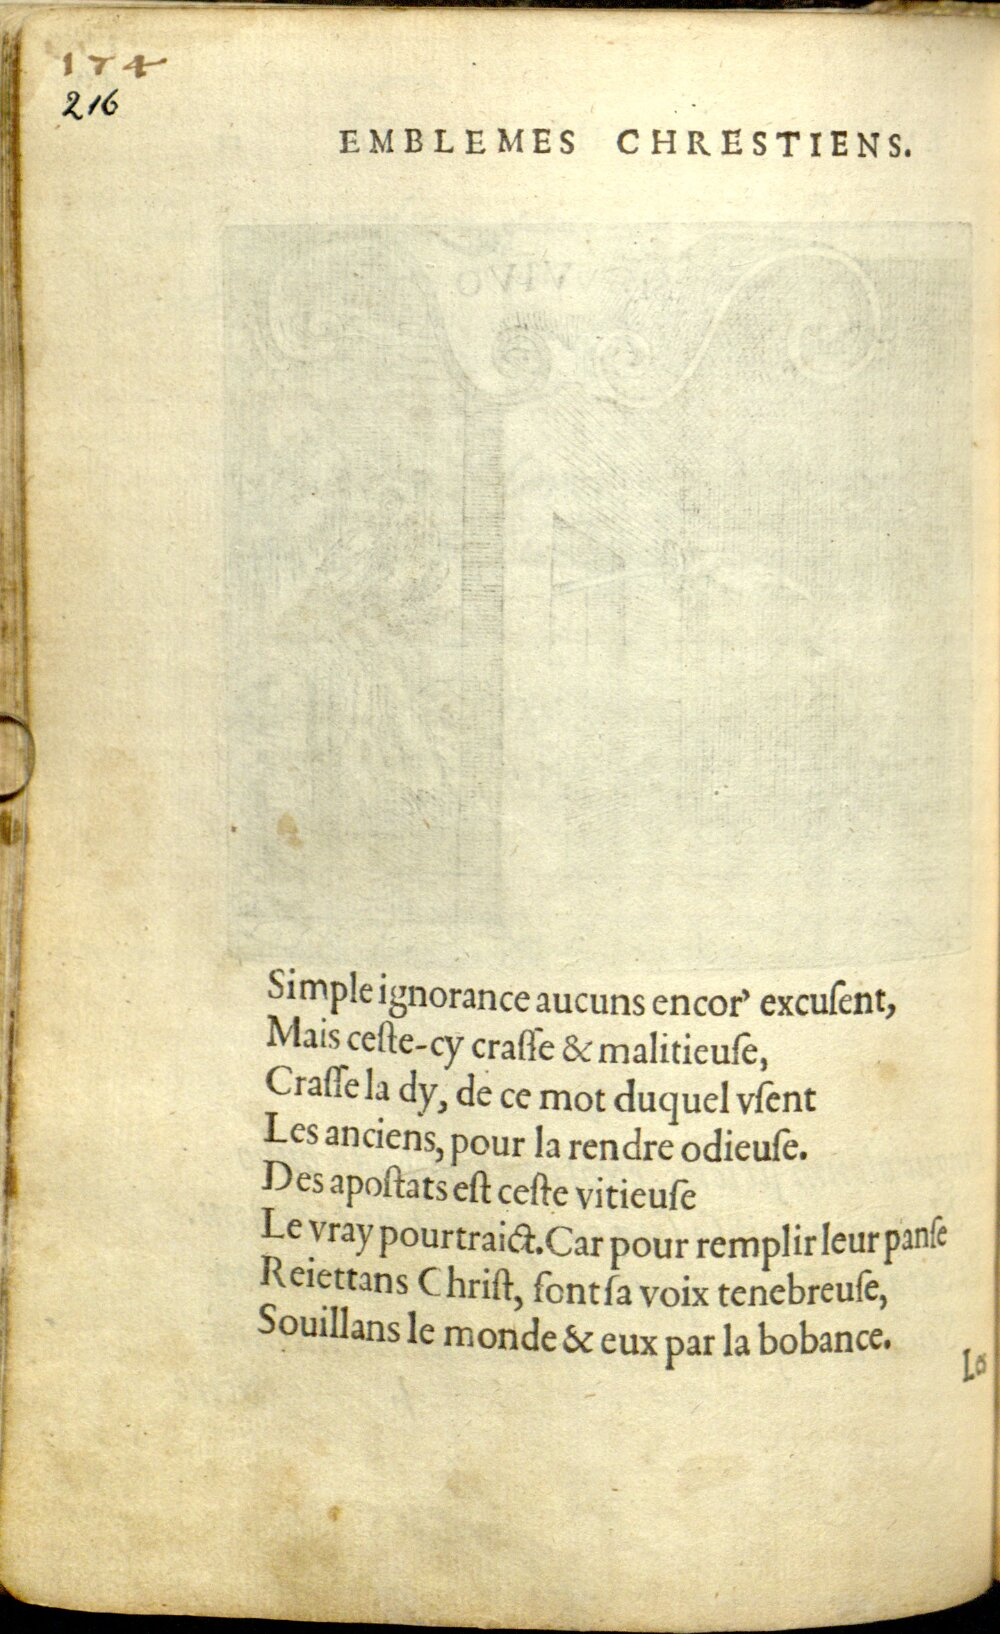 174
216
EMBLEMES CHRESTIENS.
Simple ignorance aucuns encor’ excuſent,
Mais ceſte-cy craſſe & malitieuſe,
Craſſe la dy, de ce mot duquel vſent
Les anciens, pour la rendre odieuſe.
Des apoſtats eſt ceſte vitieuſe
Le vray pourtraict. Car pour remplir leur panſe
Reiettans Chriſt, font ſa voix tenebreuſe,
Souillans le monde & eux par la bobance.